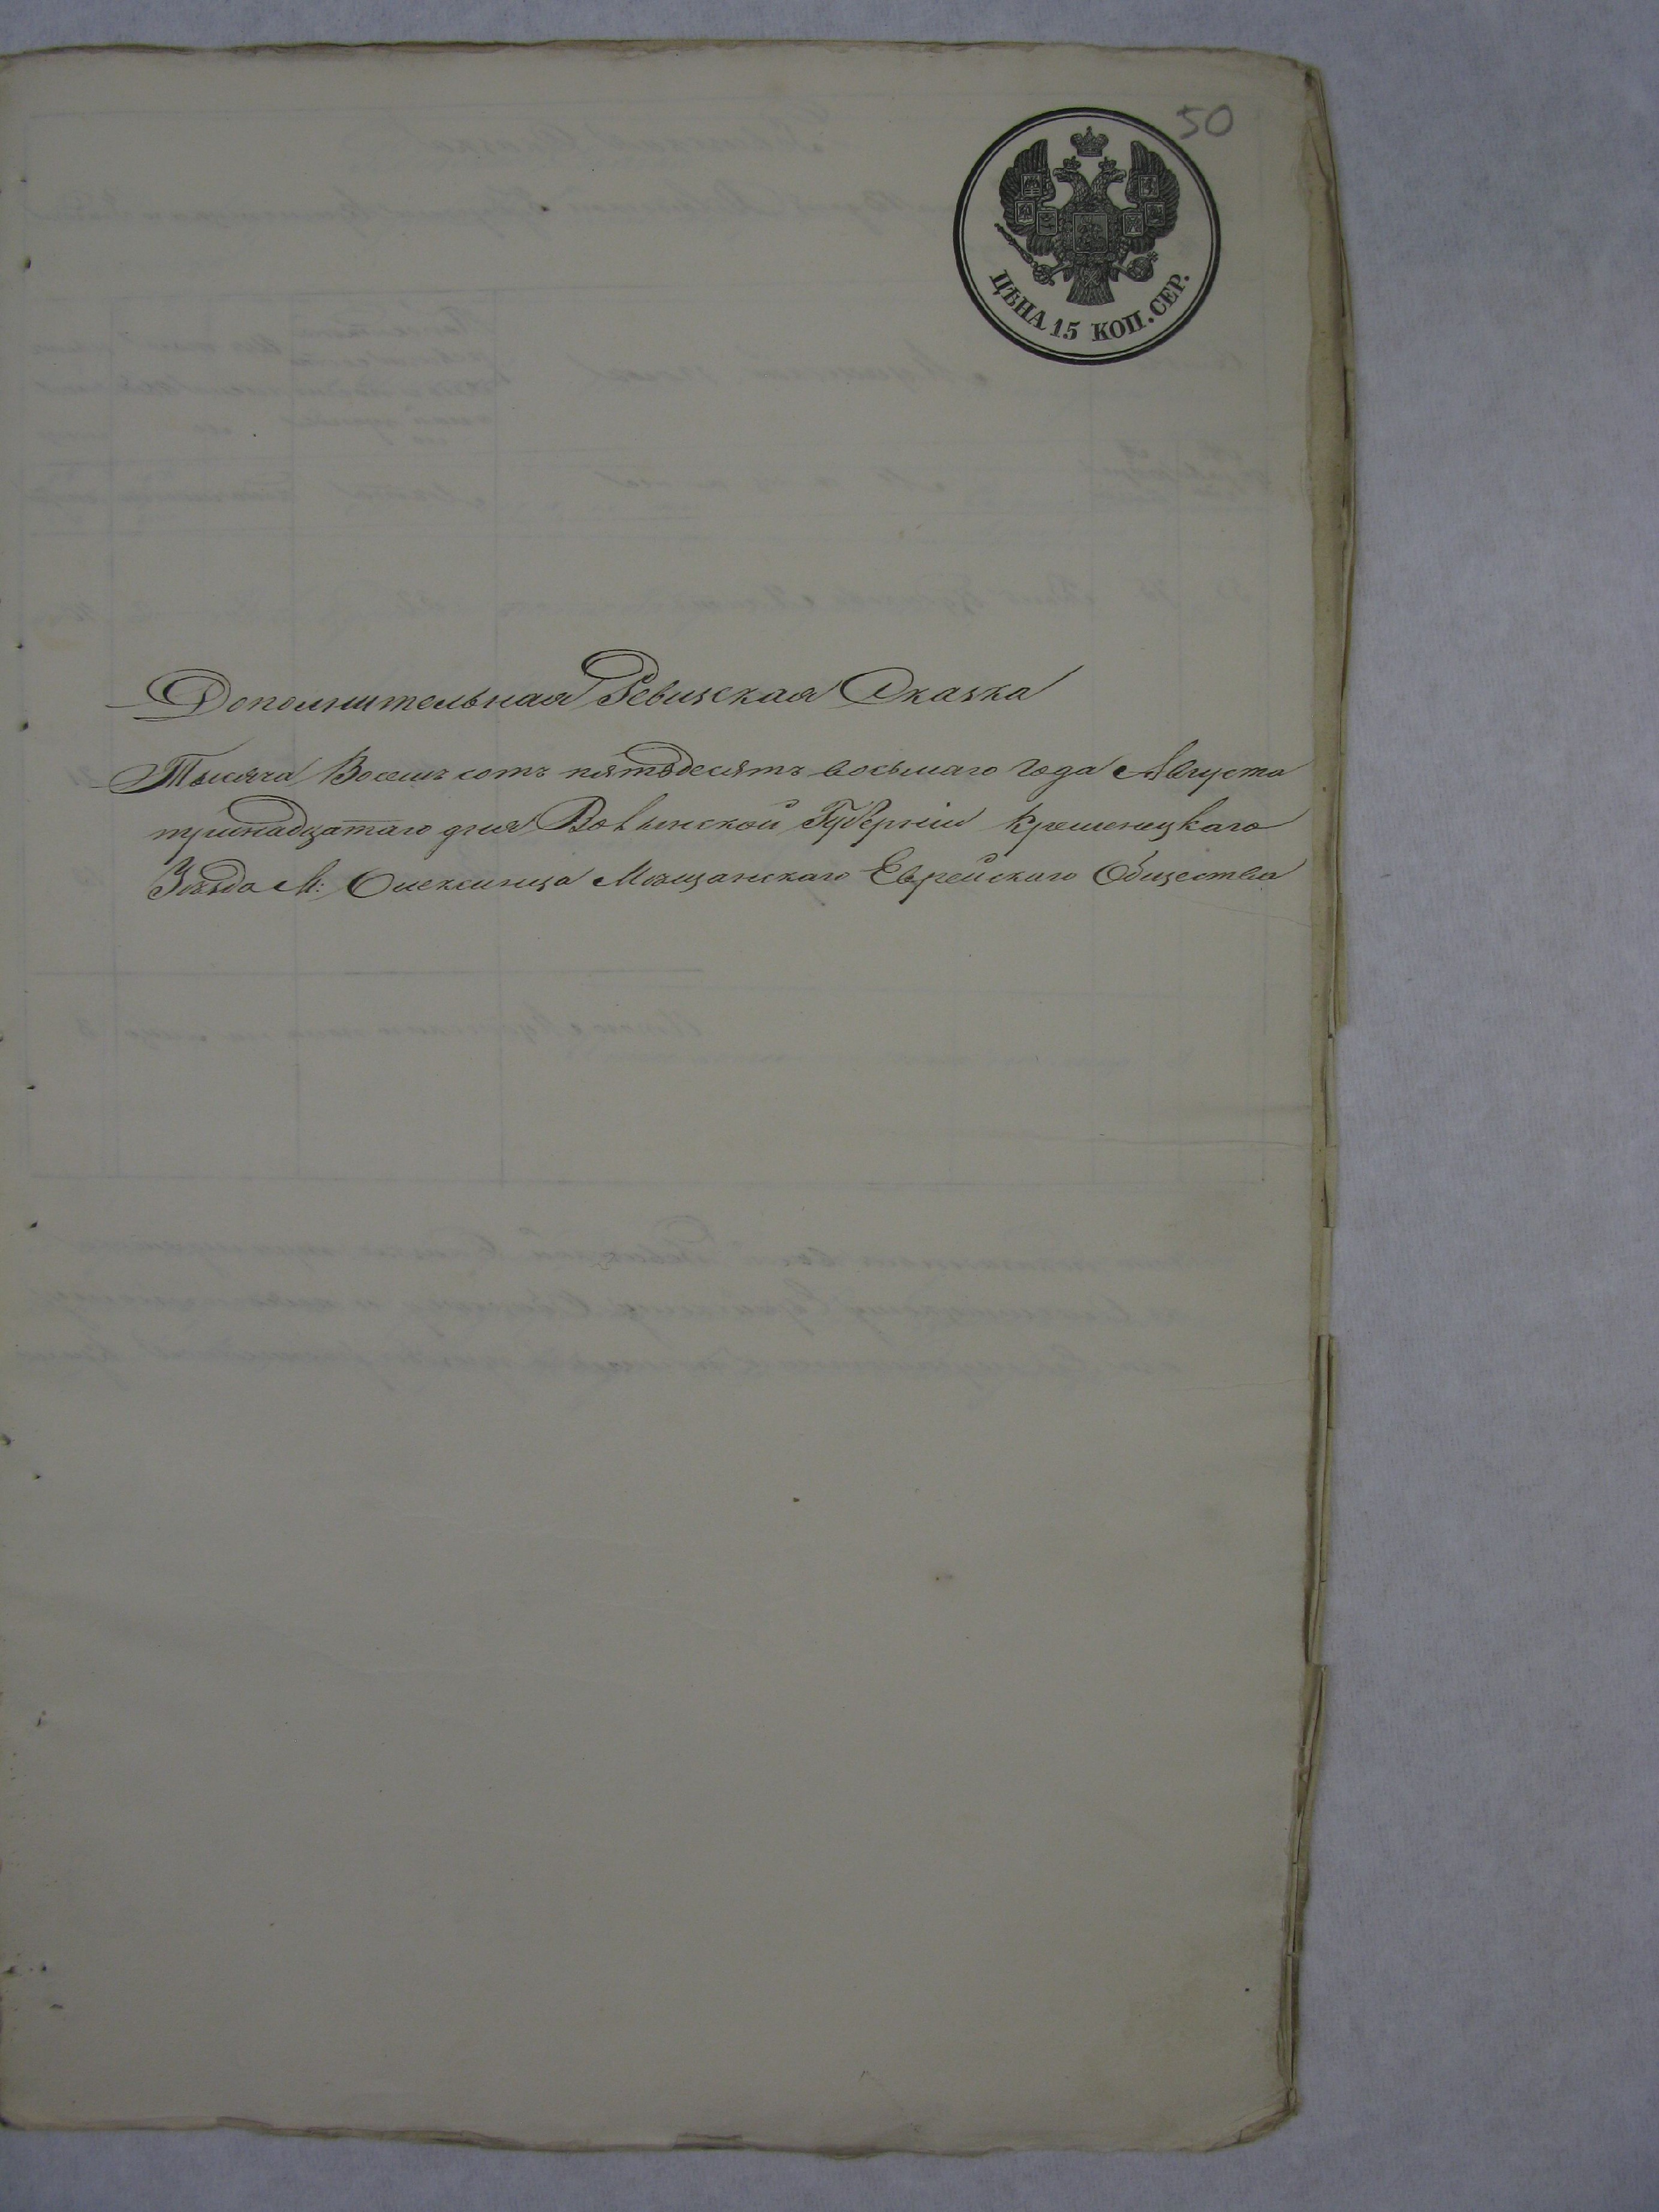 50
ЦѢНА 15 КОП. СЕР.
Дополнительная Ревизская Сказка
Тысяча Восемъ сотъ пятьдесятъ восьмаго года Августа
тринадцатаго дня Волынской Губерніи Кременецкаго
Уѣзда М: Олексинца Мѣщанскаго Еврейскаго Общества